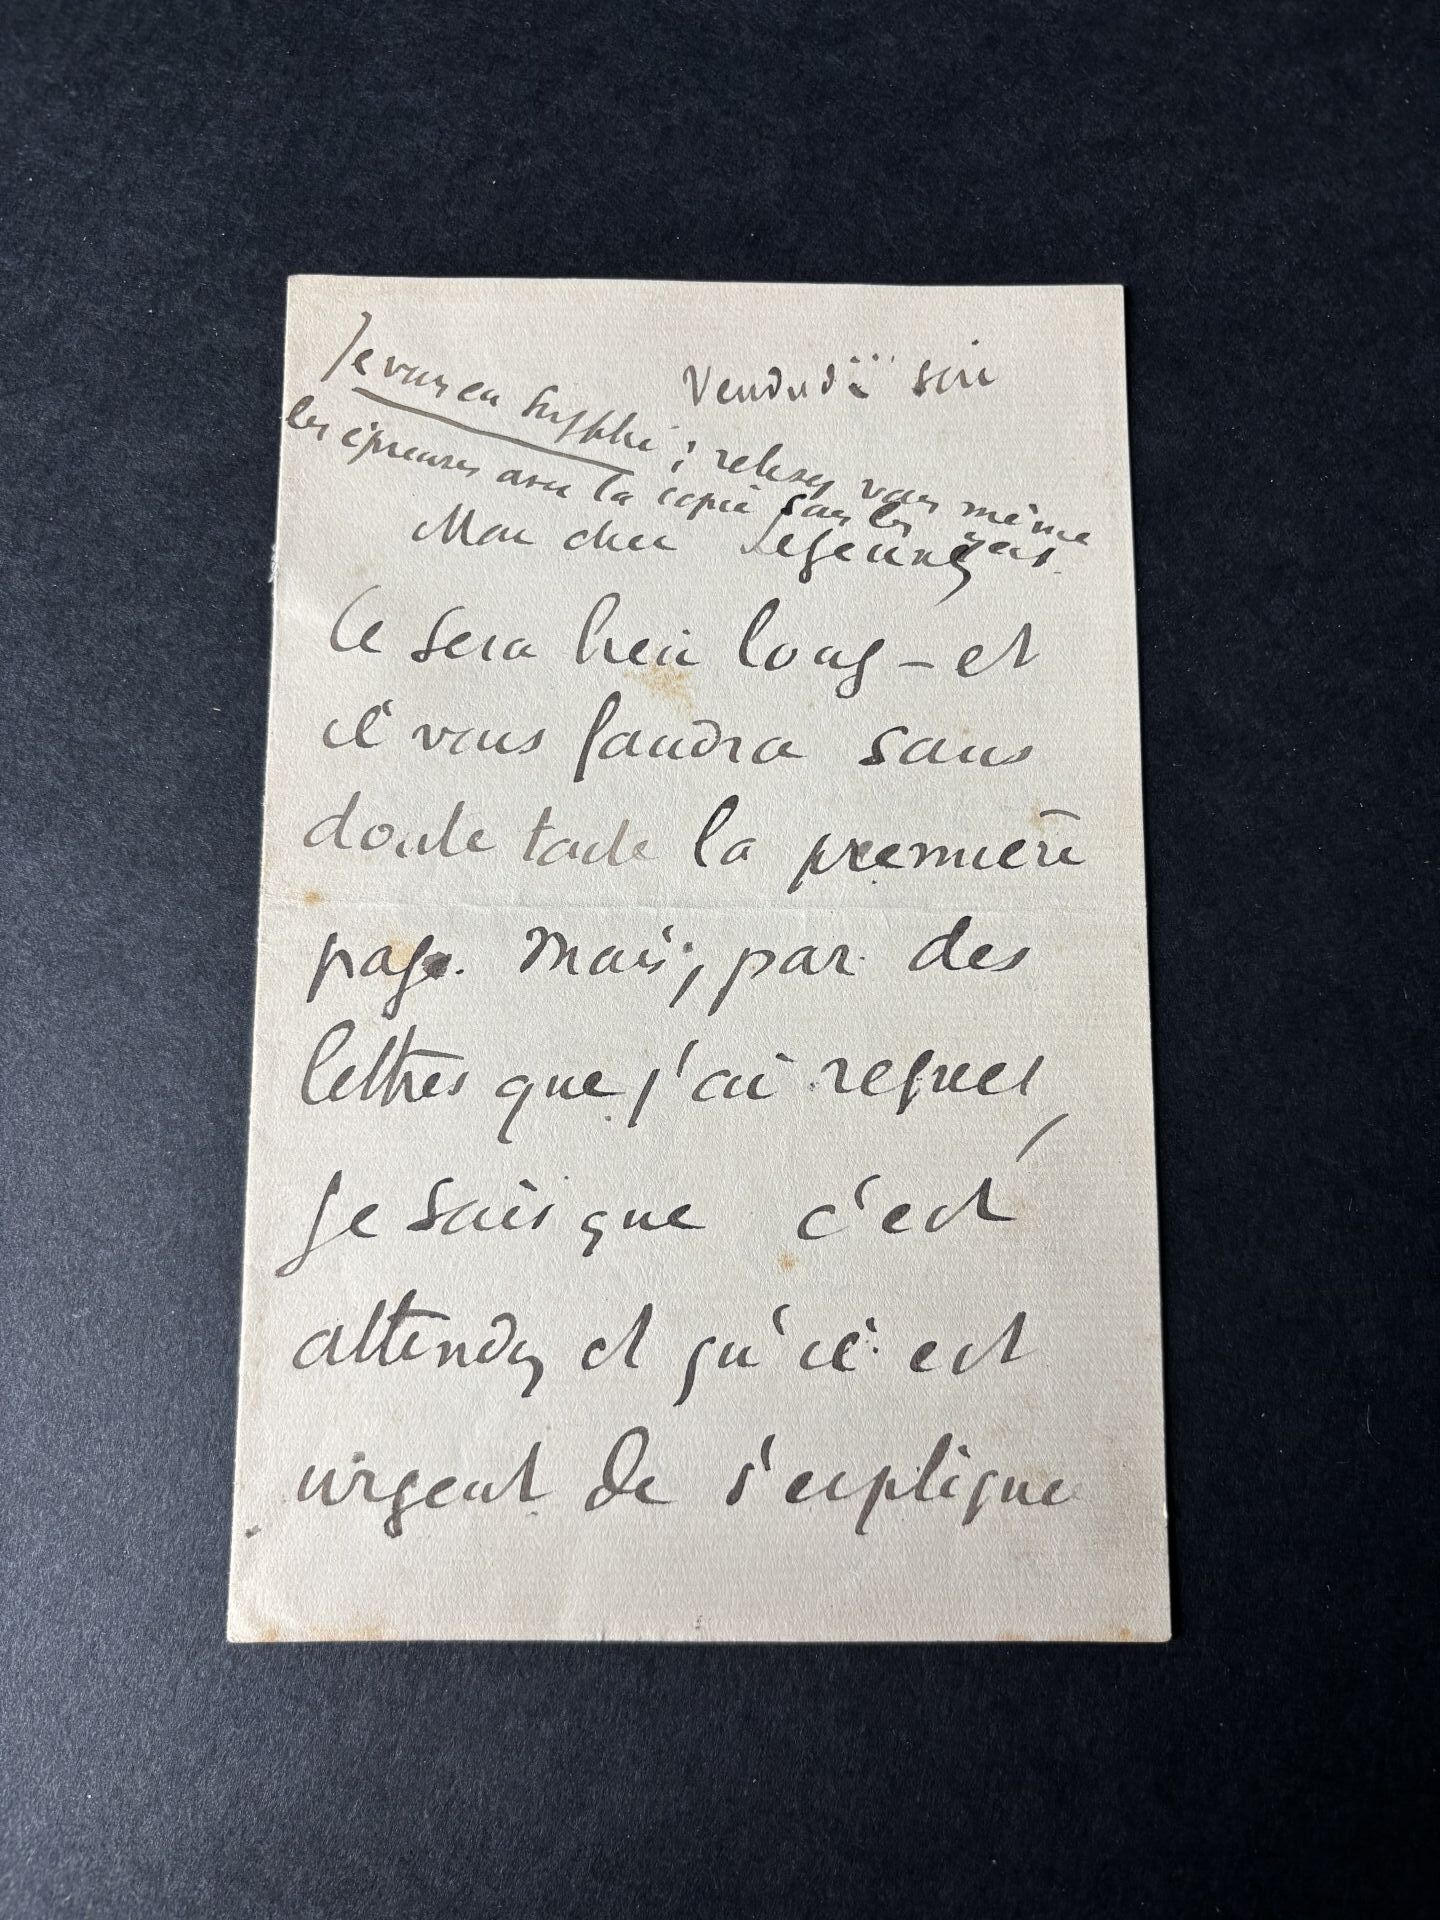 Vendredi soir
Je vous en supplie ; relisez vous même
les épreuves avec la copie sous les yeux.
Mon cher Lejeune,
Ce sera bien long – et
il vous faudra sans
doute toute la première
page. Mais, par des
lettres que j'ai reçues,
je sais que c'est
attendu et qu'il est
urgent de s'expliquer